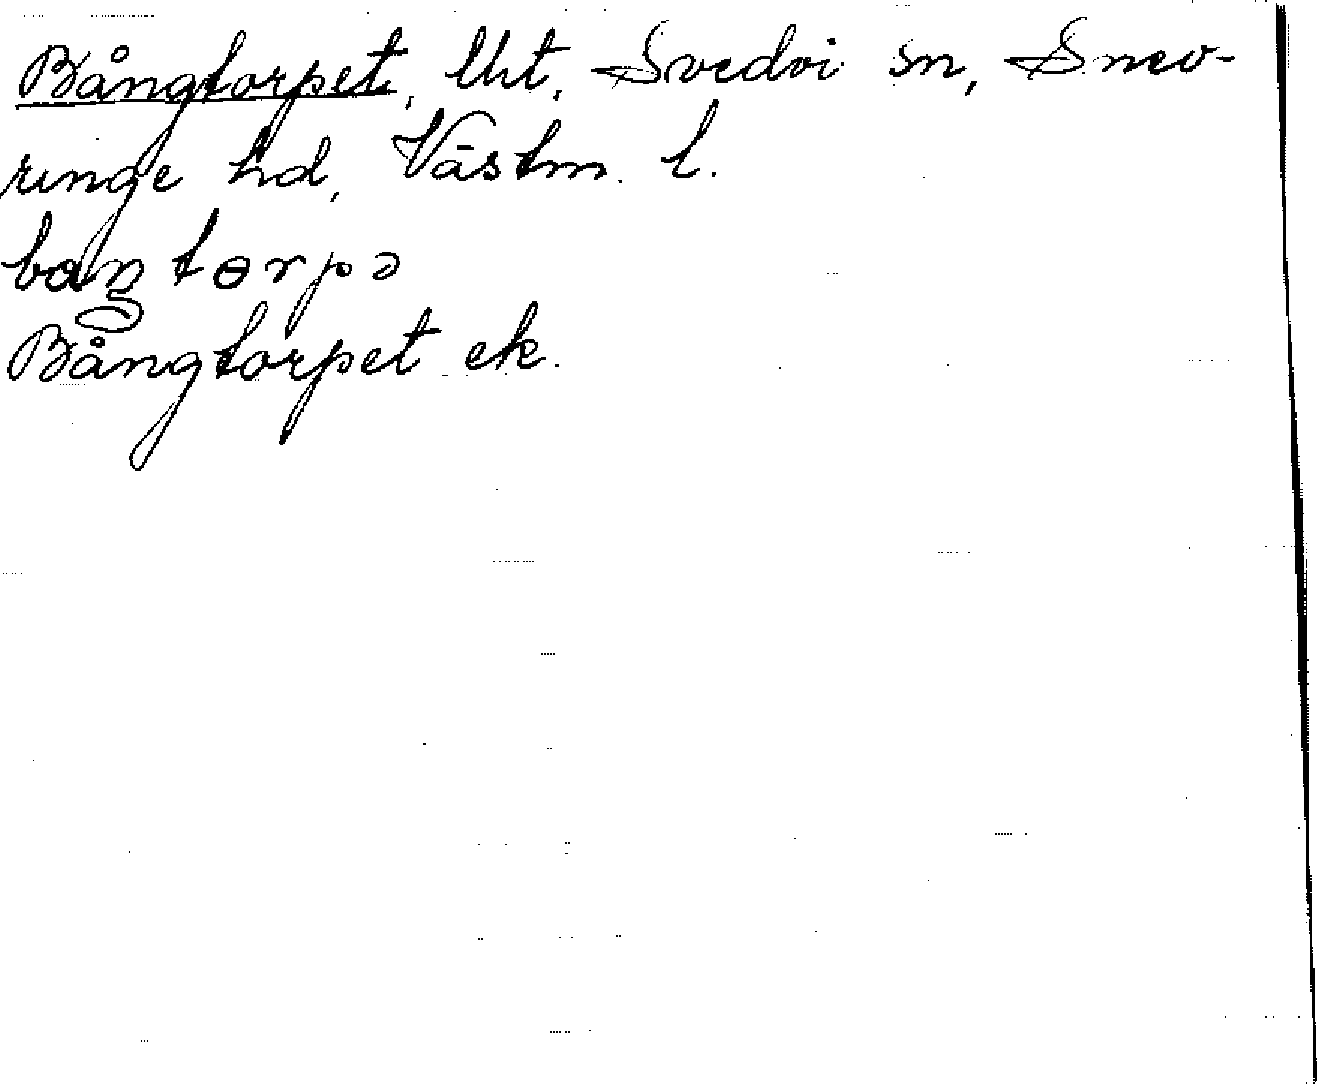 Bångtorpet, lht, Svedvi sn, Snev-
ringe hd, Västm. l.
baŋtɵrpə
Bångtorpet ek.